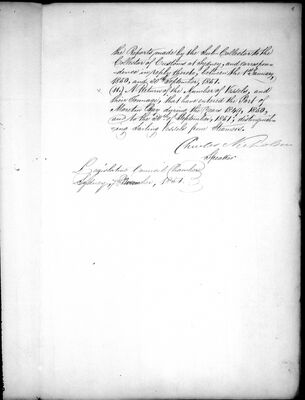 the Reports, made by the Sub-Collector to the
Collector of Customs at Sydney, and correspon-
dence in reply thereto, between the 1st January,
1850, and 30th September, 1851.
(11.) A Return of the Number of Vessels, and
their Tonnage, that have entered the Port of
Moreton Bay during the Years 1849, 1850,
and to the 30th of September, 1851; distinguish-
ing Sailing Vessels from Steamers.
Charles Nicholson
Speaker
Legislative Council Chamber
Sydney, November, 1851.